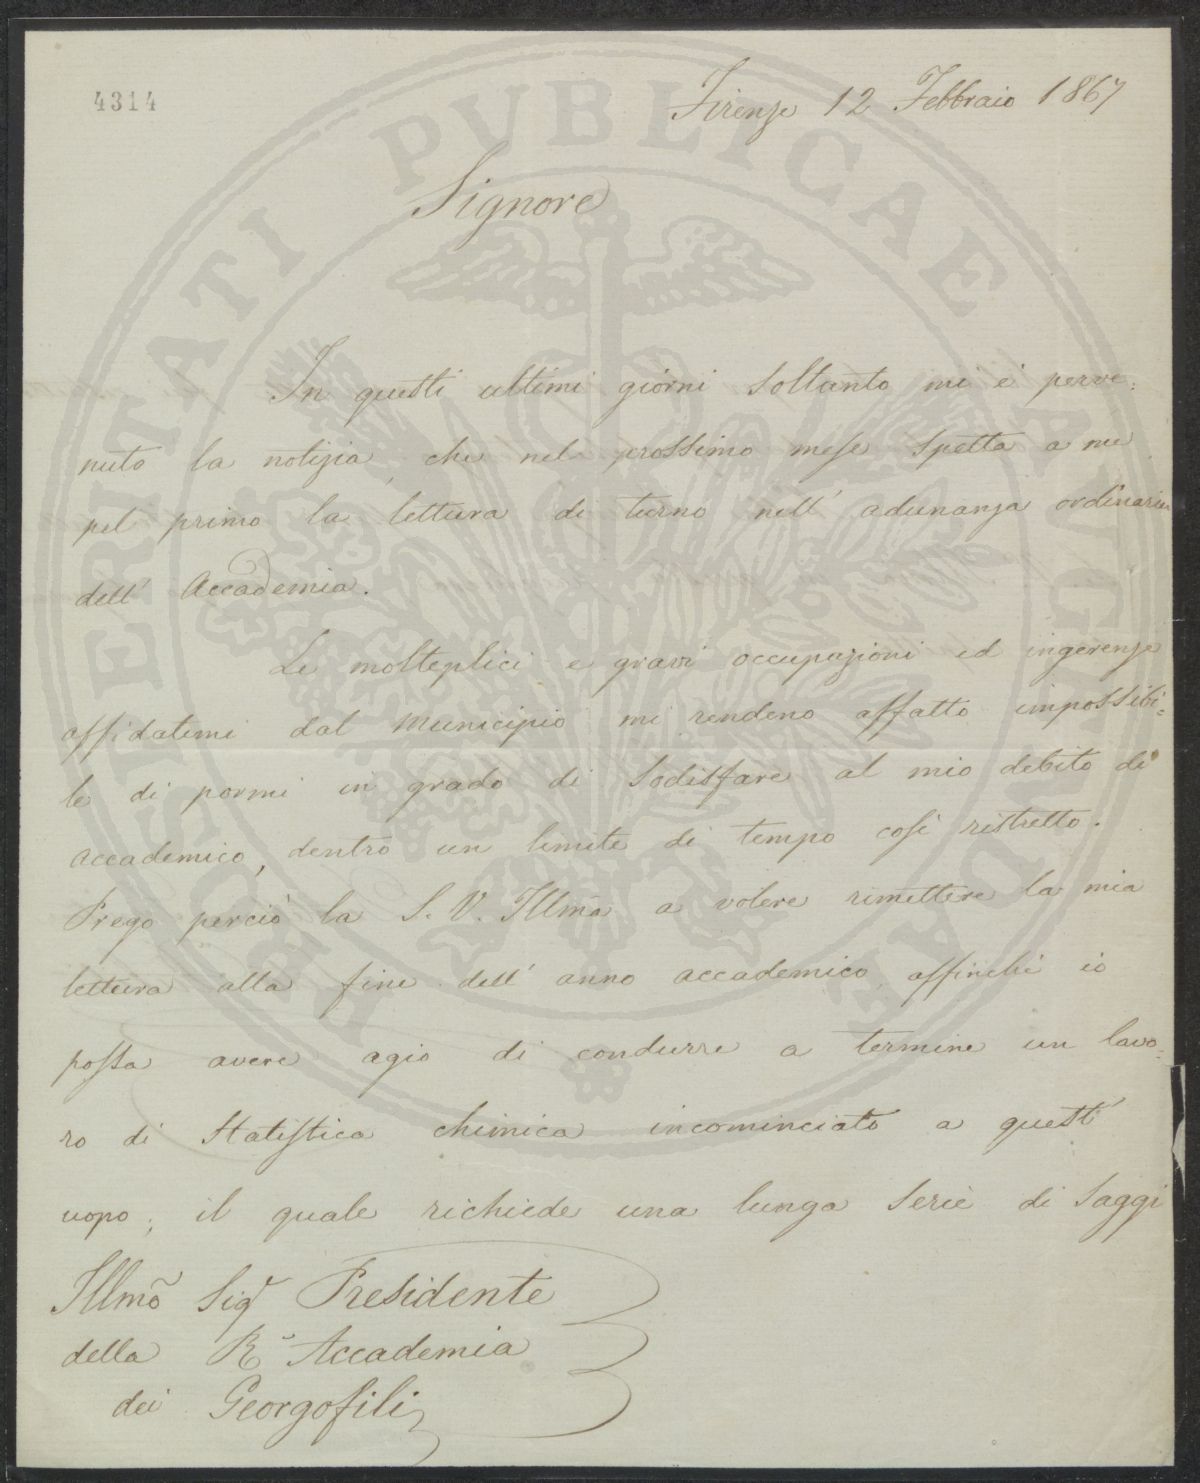 4314
Firenze 12 Febbraio 1867
Signore
In questi ultimi giorni soltanto mi è perve:
nuto la notizia, che nel prossimo mese spetta a me
pel primo la lettura di turno nell' adunanza ordinaria
dell' Accademia.
Le molteplici e gravi occupazioni ed ingerenze
affidatemi dal Municipio mi rendono affatto impossibi=
le di pormi in grado di sodisfare al mio debito di
accademico, dentro un limite di tempo così ristretto.
Prego perciò la S. V. Illma a volere rimettere la mia
lettura alla fine dell' anno accademico, affinchè io
possa avere agio di condurre a termine un lavo=
ro di Statistica chimica incominciato a quest'
uopo; il quale richiede una lunga serie di saggi
Illmo Sigr Presidente
della R. Accademia
dei Georgofili
PROSPERITATI PUBLICAE AUGENDAE